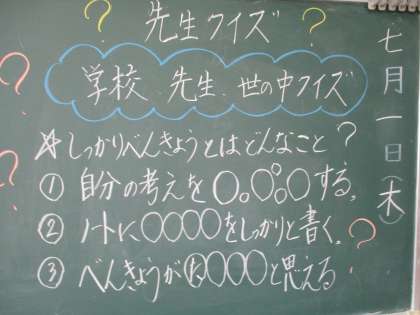 先生クイズ
学校、先生、世の中クイズ
七月一日(木)
☆しっかりべんきょうとはどんなこと?
① 自分の考えを〇。〇。〇する。
② ノートに〇〇〇〇をしっかりと書く。
③ べんきょうがた〇〇〇〇と思える